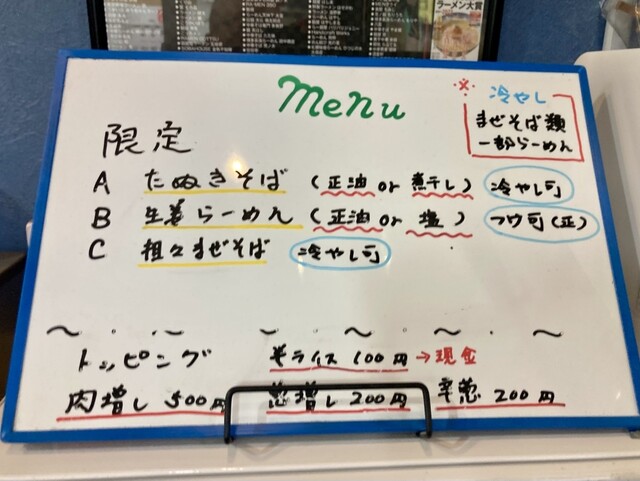 ラーメン大賞
menu
※ 冷やし
まぜそば類
一部らーめん
限定
A たぬきそば (正油 or 煮干し) 冷やし可
B 生姜らーめん (正油 or 塩) フウ可 (正)
C 担々まぜそば 冷やし可
〜 ・ ・〜 〜 ・ 〜 ・ 〜 ・ 〜
トッピング 半ライス 100円 → 現金
肉増し 500円 葱増し 200円 辛葱 200円